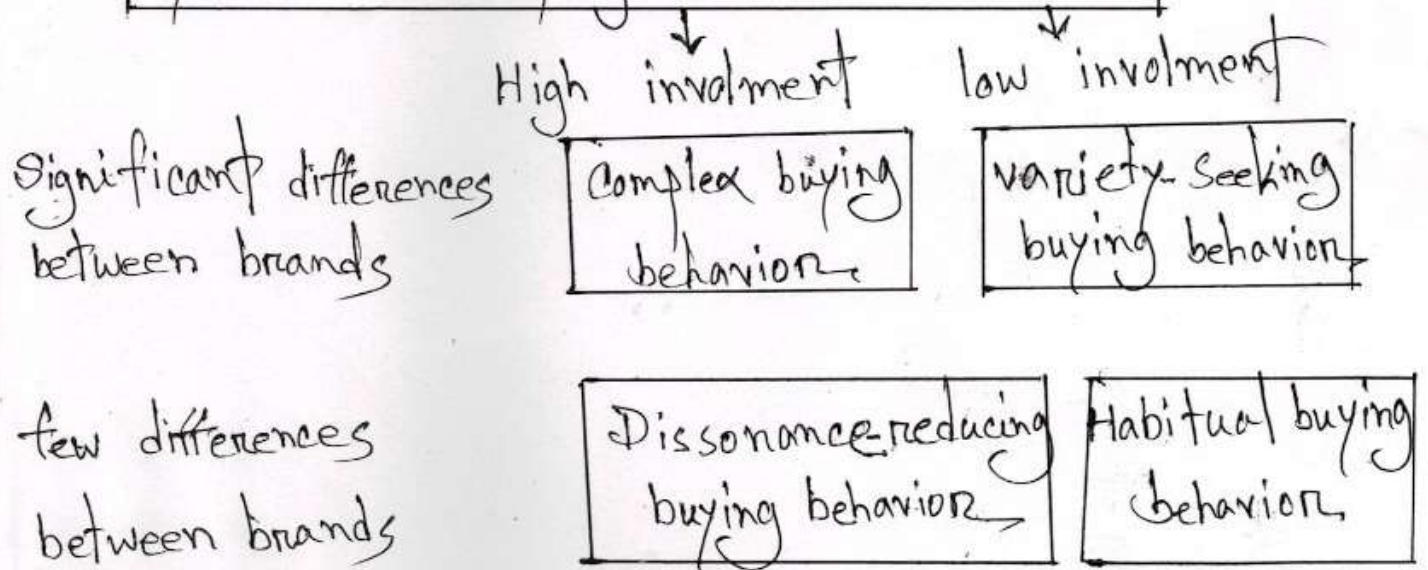 High involment low involment
Significant differences between brands
Complex buying behavior
variety-Seeking buying behavior
few differences between brands
Dissonance-reducing buying behavior
Habitual buying behavior